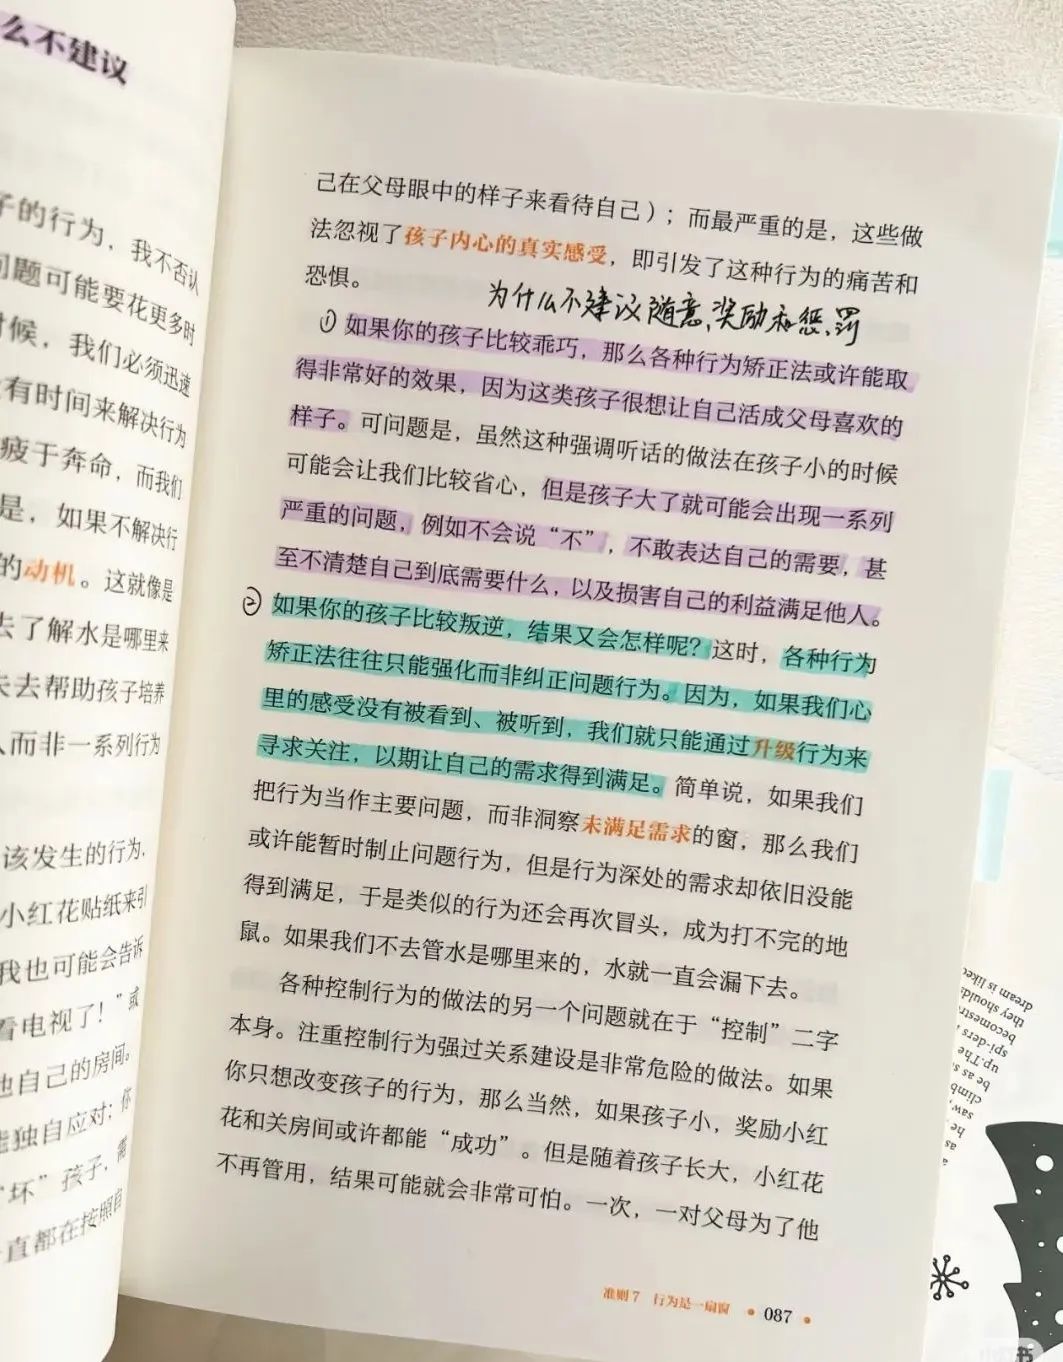 么不建议
子的行为，我不否认
问题可能要花更多时
时候，我们必须迅速
有时间来解决行为
疲于奔命，而我们
是，如果不解决行
的动机。这就像是
去了解水是哪里来
去帮助孩子培养
而非一系列行为
该发生的行为，
小红花贴纸来引
我也可能会告诉
看电视了！”或
他自己的房间。
独自应对；你
“坏”孩子，需
直都在按照自
己在父母眼中的样子来看待自己）；而最严重的是，这些做
法忽视了孩子内心的真实感受，即引发了这种行为的痛苦和
恐惧。
为什么不建议随意、奖励和惩罚
① 如果你的孩子比较乖巧，那么各种行为矫正法或许能取
得非常好的效果，因为这类孩子很想让自己活成父母喜欢的
样子。可问题是，虽然这种强调听话的做法在孩子小的时候
可能会让我们比较省心，但是孩子大了就可能会出现一系列
严重的问题，例如不会说“不”，不敢表达自己的需要，甚
至不清楚自己到底需要什么，以及损害自己的利益满足他人。
② 如果你的孩子比较叛逆，结果又会怎样呢？这时，各种行为
矫正法往往只能强化而非纠正问题行为。因为，如果我们心
里的感受没有被看到、被听到，我们就只能通过升级行为来
寻求关注，以期让自己的需求得到满足。简单说，如果我们
把行为当作主要问题，而非洞察未满足需求的窗，那么我们
或许能暂时制止问题行为，但是行为深处的需求却依旧没能
得到满足，于是类似的行为还会再次冒头，成为打不完的地
鼠。如果我们不去管水是哪里来的，水就一直会漏下去。
各种控制行为的做法的另一个问题就在于“控制”二字
本身。注重控制行为强过关系建设是非常危险的做法。如果
你只想改变孩子的行为，那么当然，如果孩子小，奖励小红
花和关房间或许都能“成功”。但是随着孩子长大，小红花
不再管用，结果可能就会非常可怕。一次，一对父母为了他
准则7 行为是一扇窗 • 087 •
dream is liked
they should
becomestr
spi-ders
up.The
be as s
climb
saw
he
as
a
小红书